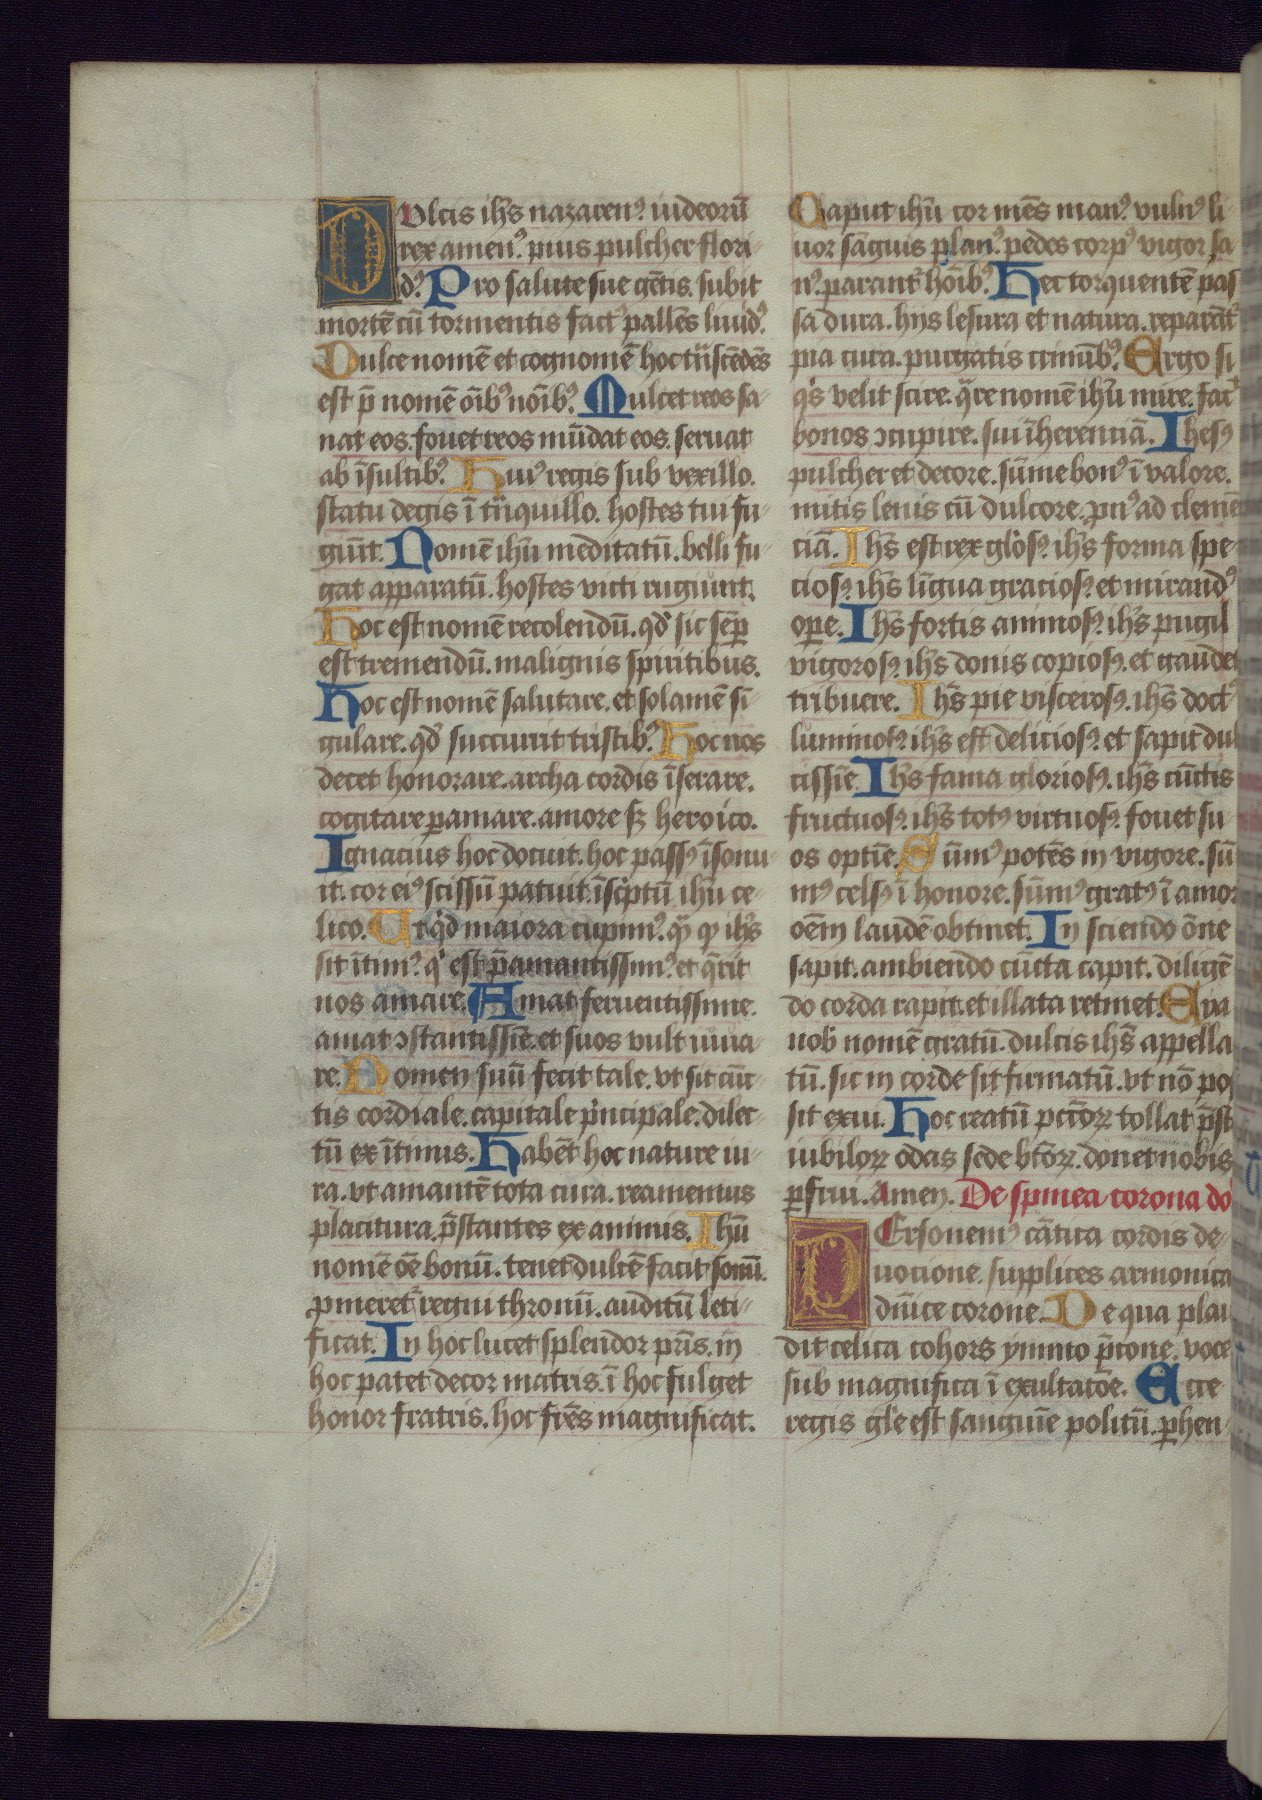 Dulcis ihs̄ nazarenꝰ iudeorū
rex amenꝰ pius pulcher flori-
dꝰ. Pro salute sue gētis. subit
mortē cū tormentis factꝰ pallēs liuidꝰ.
Dulce nomē et cognomē hoc trāscēdēs
est p̄ nomē oīb⁹ noīb⁹. Mulcet reos sa-
nat eos. fouet reos mūdat eos. seruat
ab īsultib⁹. Huiꝰ regis sub vexillo.
statu degis ī trāquillo. hostes tui fu-
giūt. Nomē ihū meditatū. belli fu-
gat apparatū. hostes victi rugiunt.
Hoc est nomē recolendū. qd̄ sic sēꝑ
est tremendū. malignis spiritibus.
Hoc est nomē salutare. et solamē si-
gulare. qd̄ succurrit tristib⁹. Hoc nos
decet honorare. archa cordis īserare.
cogitare ꝑamare. amore sꝫ heroico.
Ignacius hoc docuit. hoc passꝰ īsonu-
it. cor eiꝰ scissū patuit. īsc̄ptū ihū ce-
lico. Ut qͥd maiora cupimꝰ. qͣ ꝙ ihs̄
sit ītimꝰ. qͥ est p̄amantissimꝰ. et q̄rit
nos amare. Amat feruentissime.
amat ↄstantissīe. et suos vult iuua-
re. Nomen suū fecit tale. vt sit cūc-
tis cordiale. capitale pͥncipale. dilec-
tū ex ītimis. Habēt hoc nature iu-
ra. vt amantē tota cura. reamemus
placitura. p̄stantes ex animis. Ihū
nomē oē bonū. tenet dulcē facit sonū.
ꝓmeret regni thronū. auditū leti-
ficat. In hoc lucet splendor pr̄is. in
hoc patet decor matris. ī hoc fulget
honor fratris. hoc fr̄es magnificat.
Caput ihū cor mēs manꝰ. vulnꝰ li-
uor sāguis planꝰ. pedes corpꝰ vigor sa-
nꝰ. parant hoīb⁹. Hec torquentē pas
sa dura. hijs lesura et natura. reparāt
pia cura. purgatis crimīb⁹. Ergo si
qͥs velit scire. qͣre nomē ihū mire. fac̄
bonos ↄcupire. sui īherenciā. Ihesꝰ
pulcher et decore. sūme bonꝰ ī valore.
mitis lenis cū dulcore. ꝓnꝰ ad clemē
ciā. Ihs̄ est rex gl̄osꝰ. ihs̄ forma spe-
ciosꝰ. ihs̄ līgua graciosꝰ. et mirandꝰ
oꝑe. Ihs̄ fortis animosꝰ. ihs̄ pugil
vigorosꝰ. ihs̄ donis copiosꝰ. et gaudet
tribuere. Ihs̄ pie viscerosꝰ. ihs̄ doctꝰ
luminosꝰ. ihs̄ est deliciosꝰ. et sapit dul
cissīe. Ihs̄ fama gloriosꝰ. ihs̄ cūctis
fructuosꝰ. ihs̄ totꝰ virtuosꝰ. fouet su-
os optīe. Sūmꝰ potēs in vigore. sū
mꝰ celsꝰ ī honore. sūmꝰ gratꝰ ī amor
oēm laudē obtinet. In sciendo ōne
sapit. ambiendo cūcta capit. diligē
do corda rapit. et illata retinet. Eya
nob̄ nomē gratū. dulcis ihs̄ appella
tū. sic in corde sit firmatū. vt nō pos
sit exui. Hoc reatū pctōꝝ tollat p̄st
iubiloꝝ odas sede btōꝝ. donet nobis
ꝑfrui. Amen. De spinea corona do
Personemꝰ cātica cordis de-
uocione. supplices armonica
diuīce corone. De qua plau
dit celica cohors ymno p̄cone. voce
sub magnifica ī exultacōe. Ecce
regis gl̄e est sanguīe politū. ꝑhen-